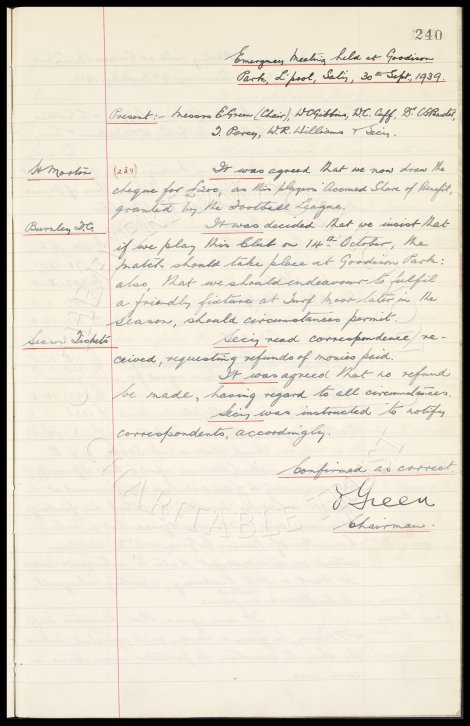 240
Emergency Meeting held at Goodison
Park, L'pool, Sat'y, 30th Sept, 1939.
Present:- Messrs E Green (Chair), W C Gibbins, W. C. Cuff, Dr C S Baxter,
T. Percy, W. R. Williams & Sec'y.
H Morton
(239)
It was agreed that we now draw the
cheque for £200, as this players' Accrued Share of Benefit,
granted by the Football League.
Burnley F.C.
It was decided that we insist that
if we play this Club on 14th October, the
match should take place at Goodison Park:
also, that we should endeavour to fulfil
a friendly fixture at Turf Moor later in the
season, should circumstances permit.
Season Tickets
Sec'y read correspondence re-
ceived, requesting refunds of monies paid.
It was agreed that no refund
be made, having regard to all circumstances.
Sec'y was instructed to notify
correspondents, accordingly.
Confirmed as correct.
Green
Chairman.
CHARITABLE